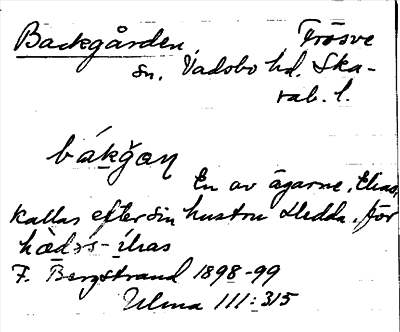 Backgården, Frösve
sn, Vadsbo hd, Ska-
rab. l.
bákǧan
En av ägarne, Elias,
kallas efter sin hustru Hedda, för
hædəs-íl̥ias
F. Bergstrand 1898-99
Ulma 111:315